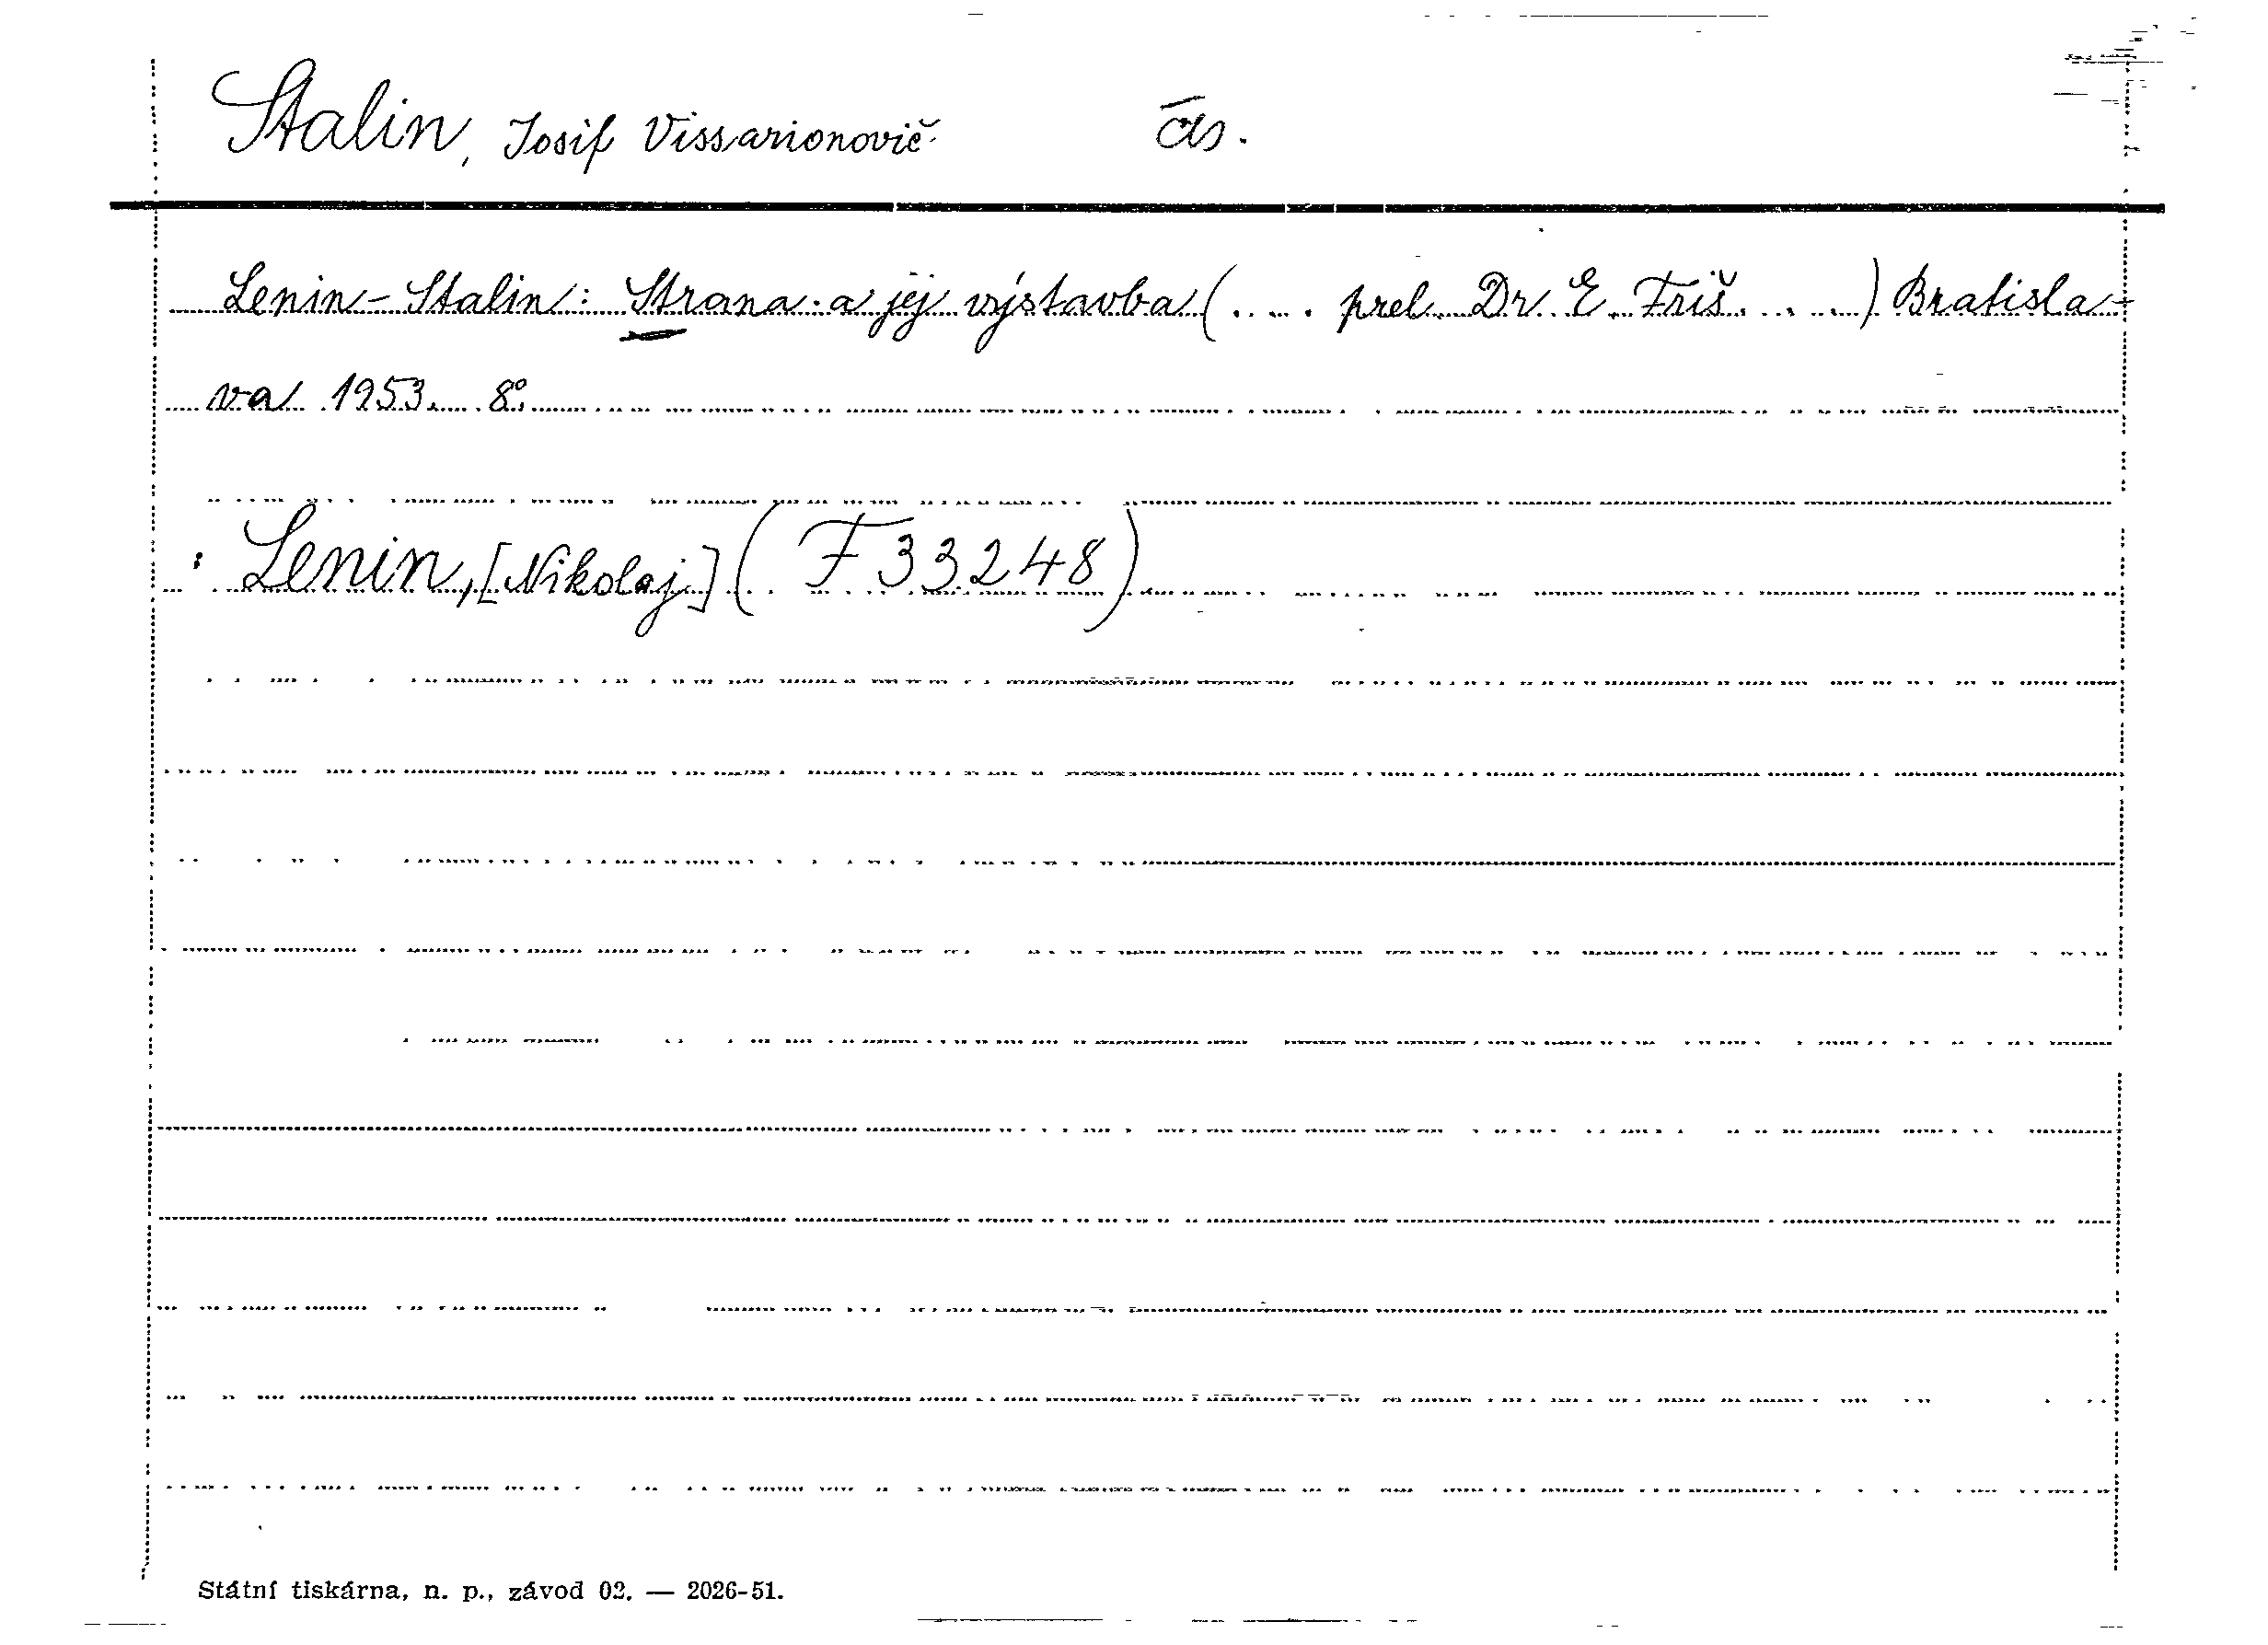 Stalin, Josif Vissarionovič čas.
Lenin-Stalin: Strana a jej výstavba (.... prel. Dr. E. Friš....) Bratisla-
va 1953. 8°.
: Lenin, [Nikolaj] (F 33248)
Státní tiskárna, n. p., závod 02. — 2026-51.